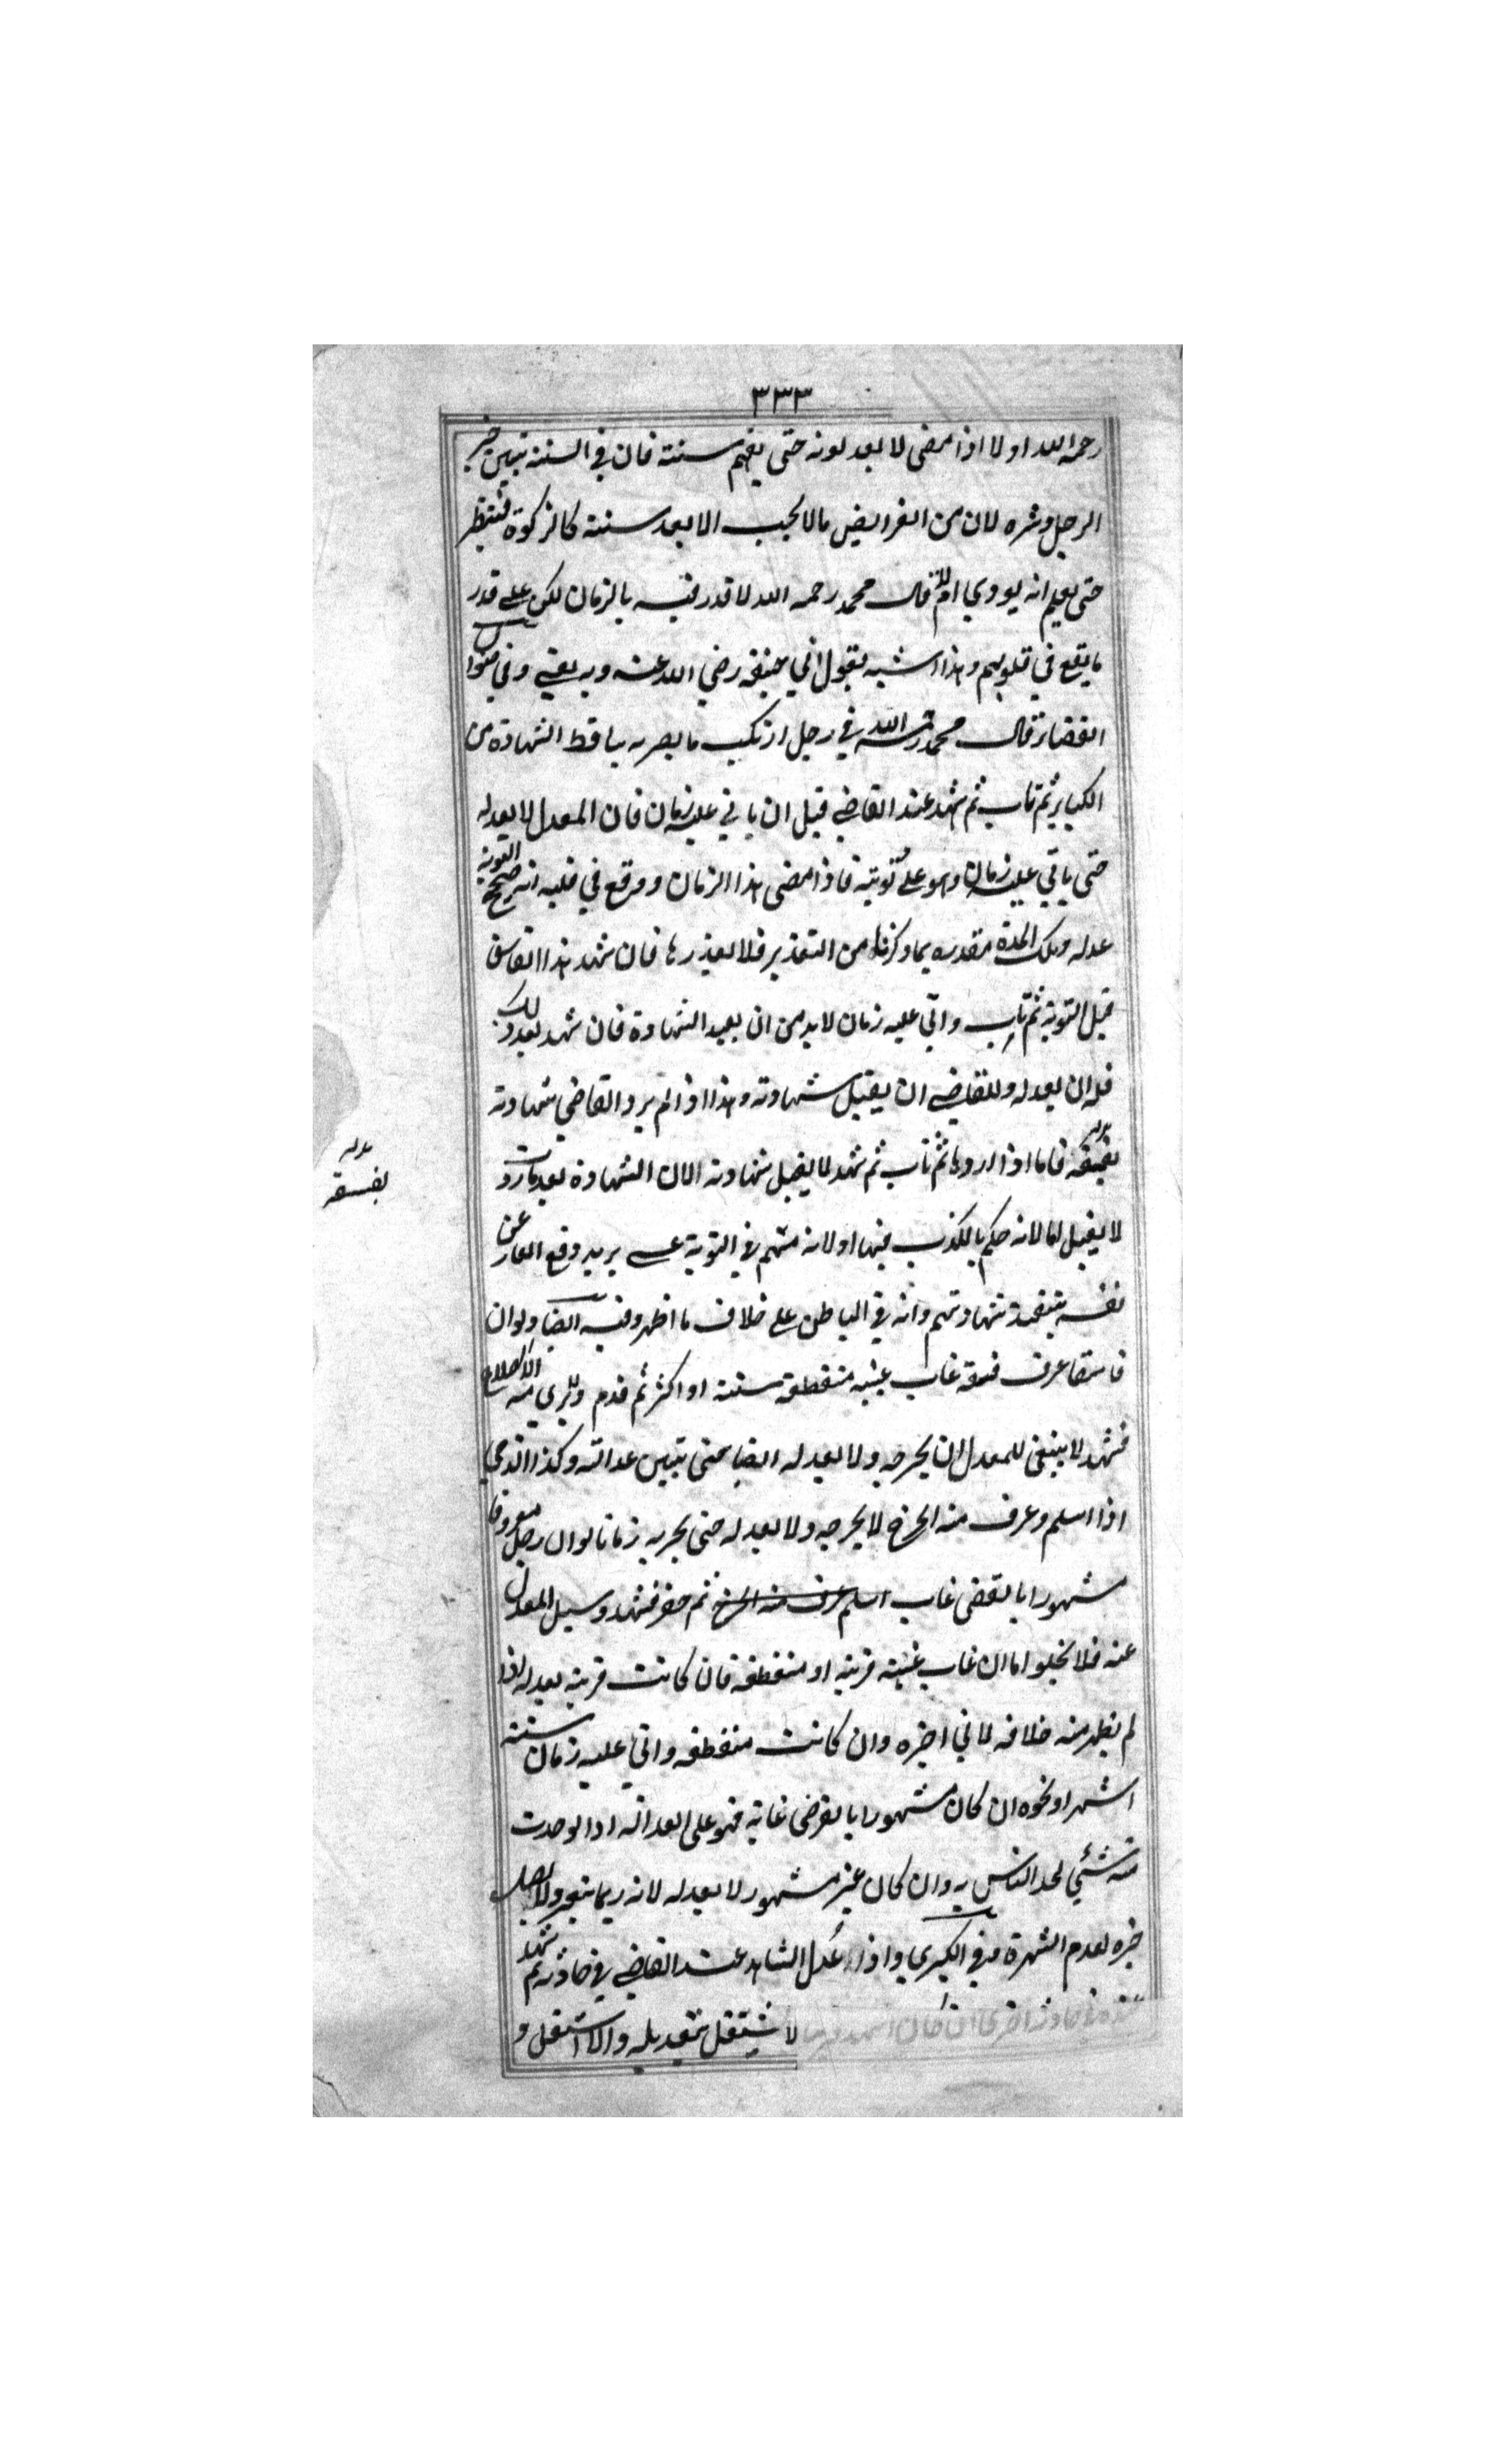 ٣٣٣
رحمه الله اولا اذا مضى لا يعدلونه حتى يقيم سنته فان في السنة تبين خير
الرجل وشره لان من الفرايض ما لا يجب الا بعد سنته كالزكوة فينتظر
حتى يعلم انه يودي ام لا قال محمد رحمه الله لا قدر فيه بالزمان لكن على قدر
ما يقع في قلوبهم وهذا اشبه بقول ابي حنيفه رضي الله عنه وبه يفتى وفي
القضاة قال محمد رحمه الله في رجل ارتكب ما يصر به ساقط الشهادة من
الكباير ثم تاب ثم شهد عند القاضي قبل ان ياتي عليه زمان فان المعدل لا يعدله
حتى ياتي عليه زمان وهو على توبته فاذا مضى هذا الزمان ووقع في قلبه انه صحيح التوبة
عدله وتلك المدة مقدره بما ذكرنا من التقدير فلا نعذرها فان شهد هذا الفاسق
قبل التوبة ثم تاب واتى عليه زمان لا بد من ان يعيد الشهادة فان شهد بعد ذلك
فله ان يعدله وللقاضي ان يقبل شهادته وهذا اذا لم يرد القاضي شهادته
بفسقه فاما اذا ردها ثم تاب ثم شهد لا يقبل شهادته لان الشهادة بعد ما ردت
بفسقه
لا يقبل اما لانه حكم بالكذب فيها او لانه متهم في التوبة عسى يريد دفع العار عن
نفسه بتنفيذ شهادتهم وانه في الباطن على خلاف ما اظهر وفيه ايضا ولو ان
فاسقا عرف فسقه غاب غيبه منقطعة سنته او اكثر ثم قدم ولا يرى منه الا الصلاح
فشهد لا ينبغي للمعدل ان يجرحه ولا يعدله ايضا حتى تبين عدالته وكذا الذمي
اذا اسلم وعرف منه الجرح لا يجرحه ولا يعدله حتى يجربه زمانا لو ان رجل معروفا
مشهورا بالقضى غاب اسلم عرف منه الجرح ثم حضر فشهد وسيل المعدل
عنه فلا يخلو اما ان غاب غيبته قريبه او منقطعه فان كانت قريبه يعدله اذا
لم يظهر منه خلافه لما في اخره وان كانت منقطعه واتى عليه زمان سته
اشهر او نحوه ان كان مشهورا بالرضى غايه فهو على العداله اذا لو حدث
منه شي لحد الناس به وان كان غير مشهور لا يعدله لانه ربما يتغير ولا يصل
خبره لعدم الشهرة وفي الكبرى واذا عدل الشاهد عند القاضي في حادثه ثم شهد
عنده في حادثه اخرى ان كان العهد قريبا لا يشتغل بتعديله والا اشتغل و